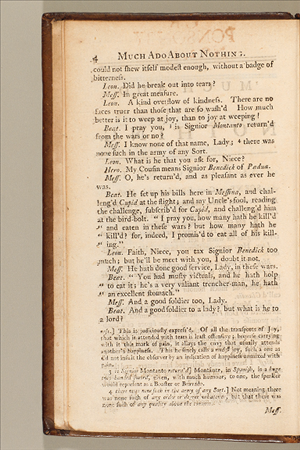 4 MUCH ADO ABOUT NOTHING.
could not shew itself modest enough, without a badge of
bitterness.
Leon. Did he break out into tears?
Mess. In great measure.
Leon. A kind overflow of kindness. There are no
faces truer than those that are so wash'd. How much
better is it to weep at joy, than to joy at weeping!
Beat. I pray you, is Signior Montanto return'd
from the wars or no?
Mess. I know none of that name, Lady; there was
none such in the army of any Sort.
Leon. What is he that you ask for, Niece?
Hero. My Cousin means Signior Benedick of Padua.
Mess. O, he's return'd, and as pleasant as ever he
was.
Beat. He set up his bills here in Messina, and chal-
leng'd Cupid at the flight; and my Uncle's fool, reading
the challenge, subscrib'd for Cupid, and challeng'd him
at the bird-bolt. " I pray you, how many hath he kill'd
" and eaten in these wars? but how many hath he
" kill'd? for, indeed, I promis'd to eat all of his kill-
" ing."
Leon. Faith, Niece, you tax Signior Benedick too
much; but he'll be meet with you, I doubt it not.
Mess. He hath done good service, Lady, in these wars.
Beat. " You had musty victuals, and he hath holp
" to eat it; he's a very valiant trencher-man, he hath
" an excellent stomach."
Mess. And a good soldier too, Lady.
Beat. And a good soldier to a lady? but what is he to
a lord?
This is judiciously express'd. Of all the transports of Joy,
that which is attended with tears is least offensive; because carrying
with it this mark of pain, it allays the envy that usually attends
another's happiness. This he finely calls a modest joy, such a one as
did not insult the observer by an indication of happiness unmixed with
pain.
is Signior Montanto return'd] Montante, in Spanish, is a huge
two-handed sword, given, with much humour, to one, the speaker
would represent as a Boaster or Bravado.
there was none such in the army of any Sort.] Not meaning there
was none such of any order or degree whatever, but that there was
none such of any quality above the common.
Mess.